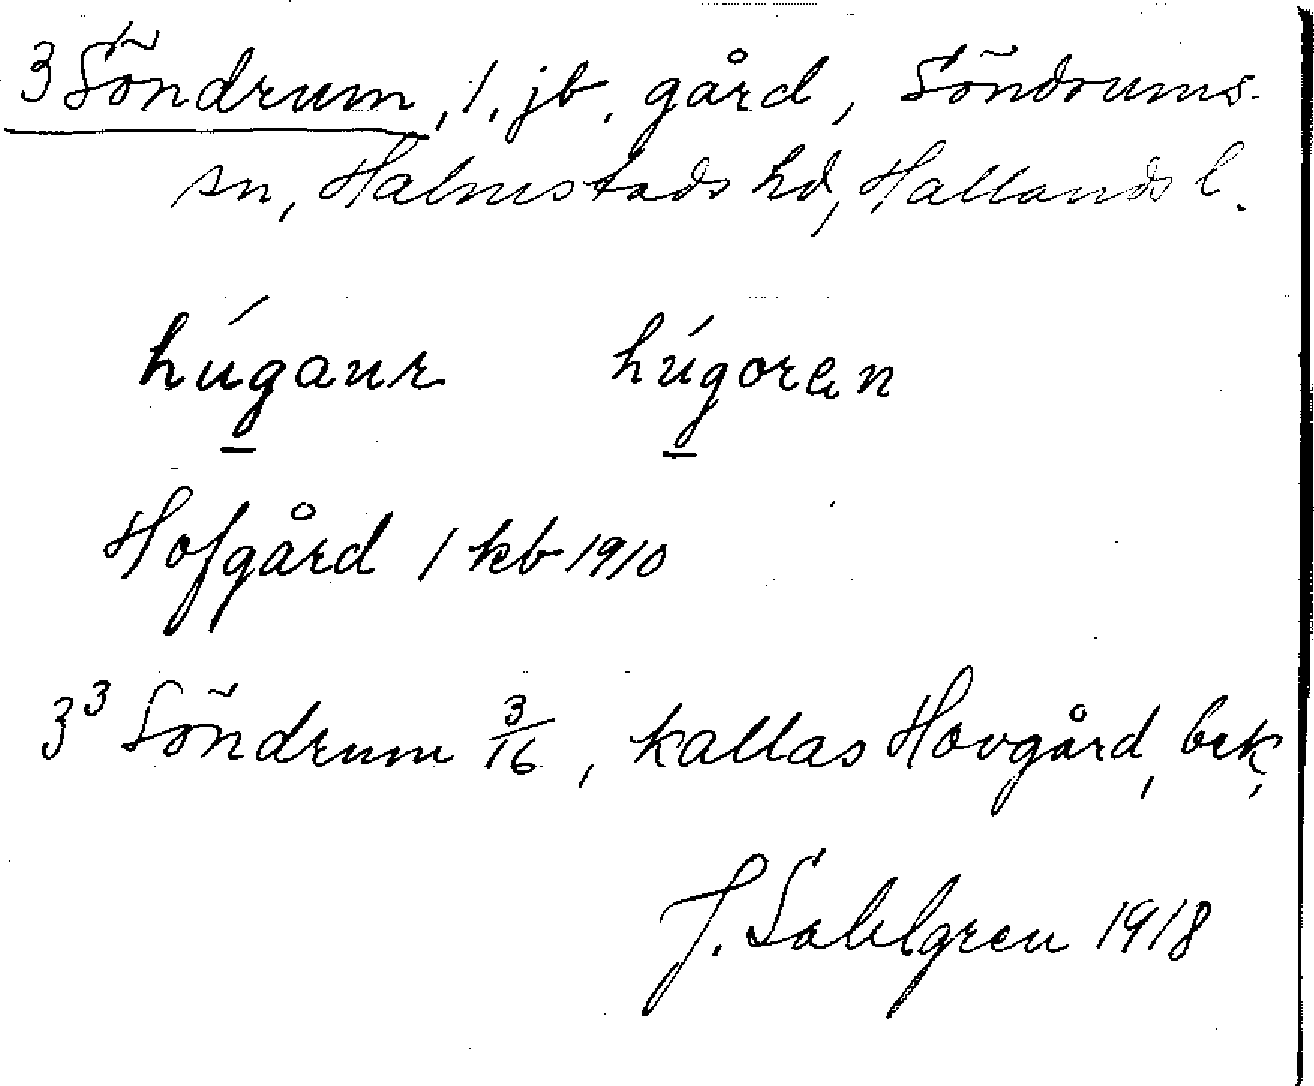 3 Söndrum, 1. jb. gård, Söndrums
sn, Halmstads hd, Hallands l.
húgaur húgoran
Hofgård 1 kb 1910
3³ Söndrum 3/16, kallas Hovgård, brk,
J. Sahlgren 1918